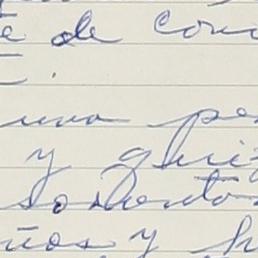 e de con
una pe
y quiz
somentos
ños y h